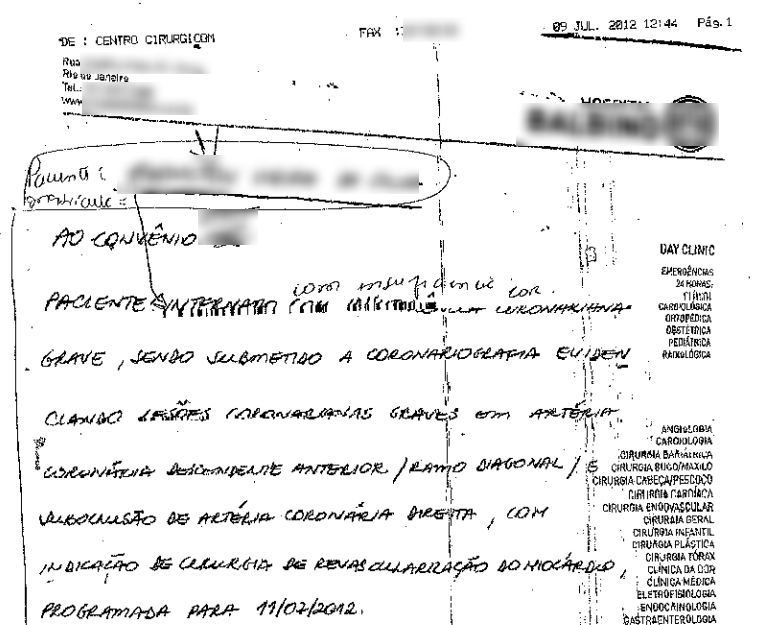 DE : CENTRO CIRURGICOM
FAX :
09 JUL. 2012 12:44 Pág. 1
Rua
Rio de Janeiro
Tel.:
www
HOSPITAL
BALBINO
Paciente:
AO CONVÊNIO
com insuficiência cor.
PACIENTE INTERNADO COM CORONARIANA
GRAVE, SENDO SUBMETIDO A CORONARIOGRAFIA EVIDEN
CIANDO LESÕES CORONARIANAS GRAVES EM ARTÉRIA
CORONÁRIA DESCENDENTE ANTERIOR / RAMO DIAGONAL / E
SUBOCLUSÃO DE ARTÉRIA CORONÁRIA DIREITA, COM
INDICAÇÃO DE CIRURGIA DE REVASCULARIZAÇÃO DO MIOCÁRDIO,
PROGRAMADA PARA 11/07/2012.
DAY CLINIC
EMERGÊNCIAS
24 HORAS:
CARDIOLÓGICA
ORTOPÉDICA
OBSTÉTRICA
PEDIÁTRICA
RADIOLÓGICA
ANGIOLOGIA
CARDIOLOGIA
CIRURGIA BARIÁTRICA
CIRURGIA BUCO/MAXILO
CIRURGIA CABEÇA/PESCOÇO
CIRURGIA CARDÍACA
CIRURGIA ENDOVASCULAR
CIRURGIA GERAL
CIRURGIA INFANTIL
CIRURGIA PLÁSTICA
CIRURGIA TÓRAX
CLÍNICA DA DOR
CLÍNICA MÉDICA
ELETROFISIOLOGIA
ENDOCRINOLOGIA
GASTRAENTEROLOGIA